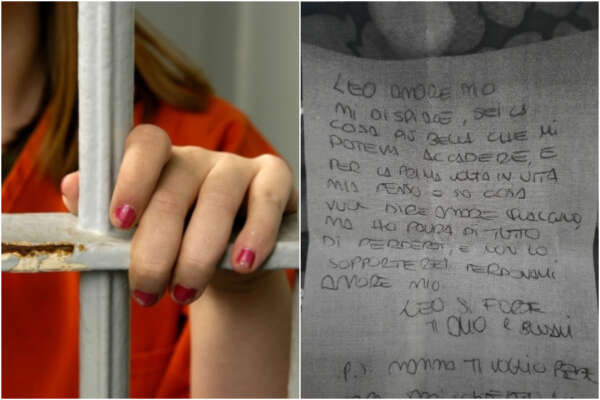 LEO AMORE MIO
MI DISPIACE, SEI LA
COSA PIÙ BELLA CHE MI
POTEVA ACCADERE, E
PER LA PRIMA VOLTA IN VITA
MIA PENSO E SO COSA
VUOL DIRE AMARE QUALCUNO,
MA HO PAURA DI TUTTO
DI PERDERTI, E NON LO
SOPPORTEREI PERDONAMI
AMORE MIO
LEO SI FORTE
TI AMO E SCUSAMI
P.S. NONNA TI VOGLIO BENE